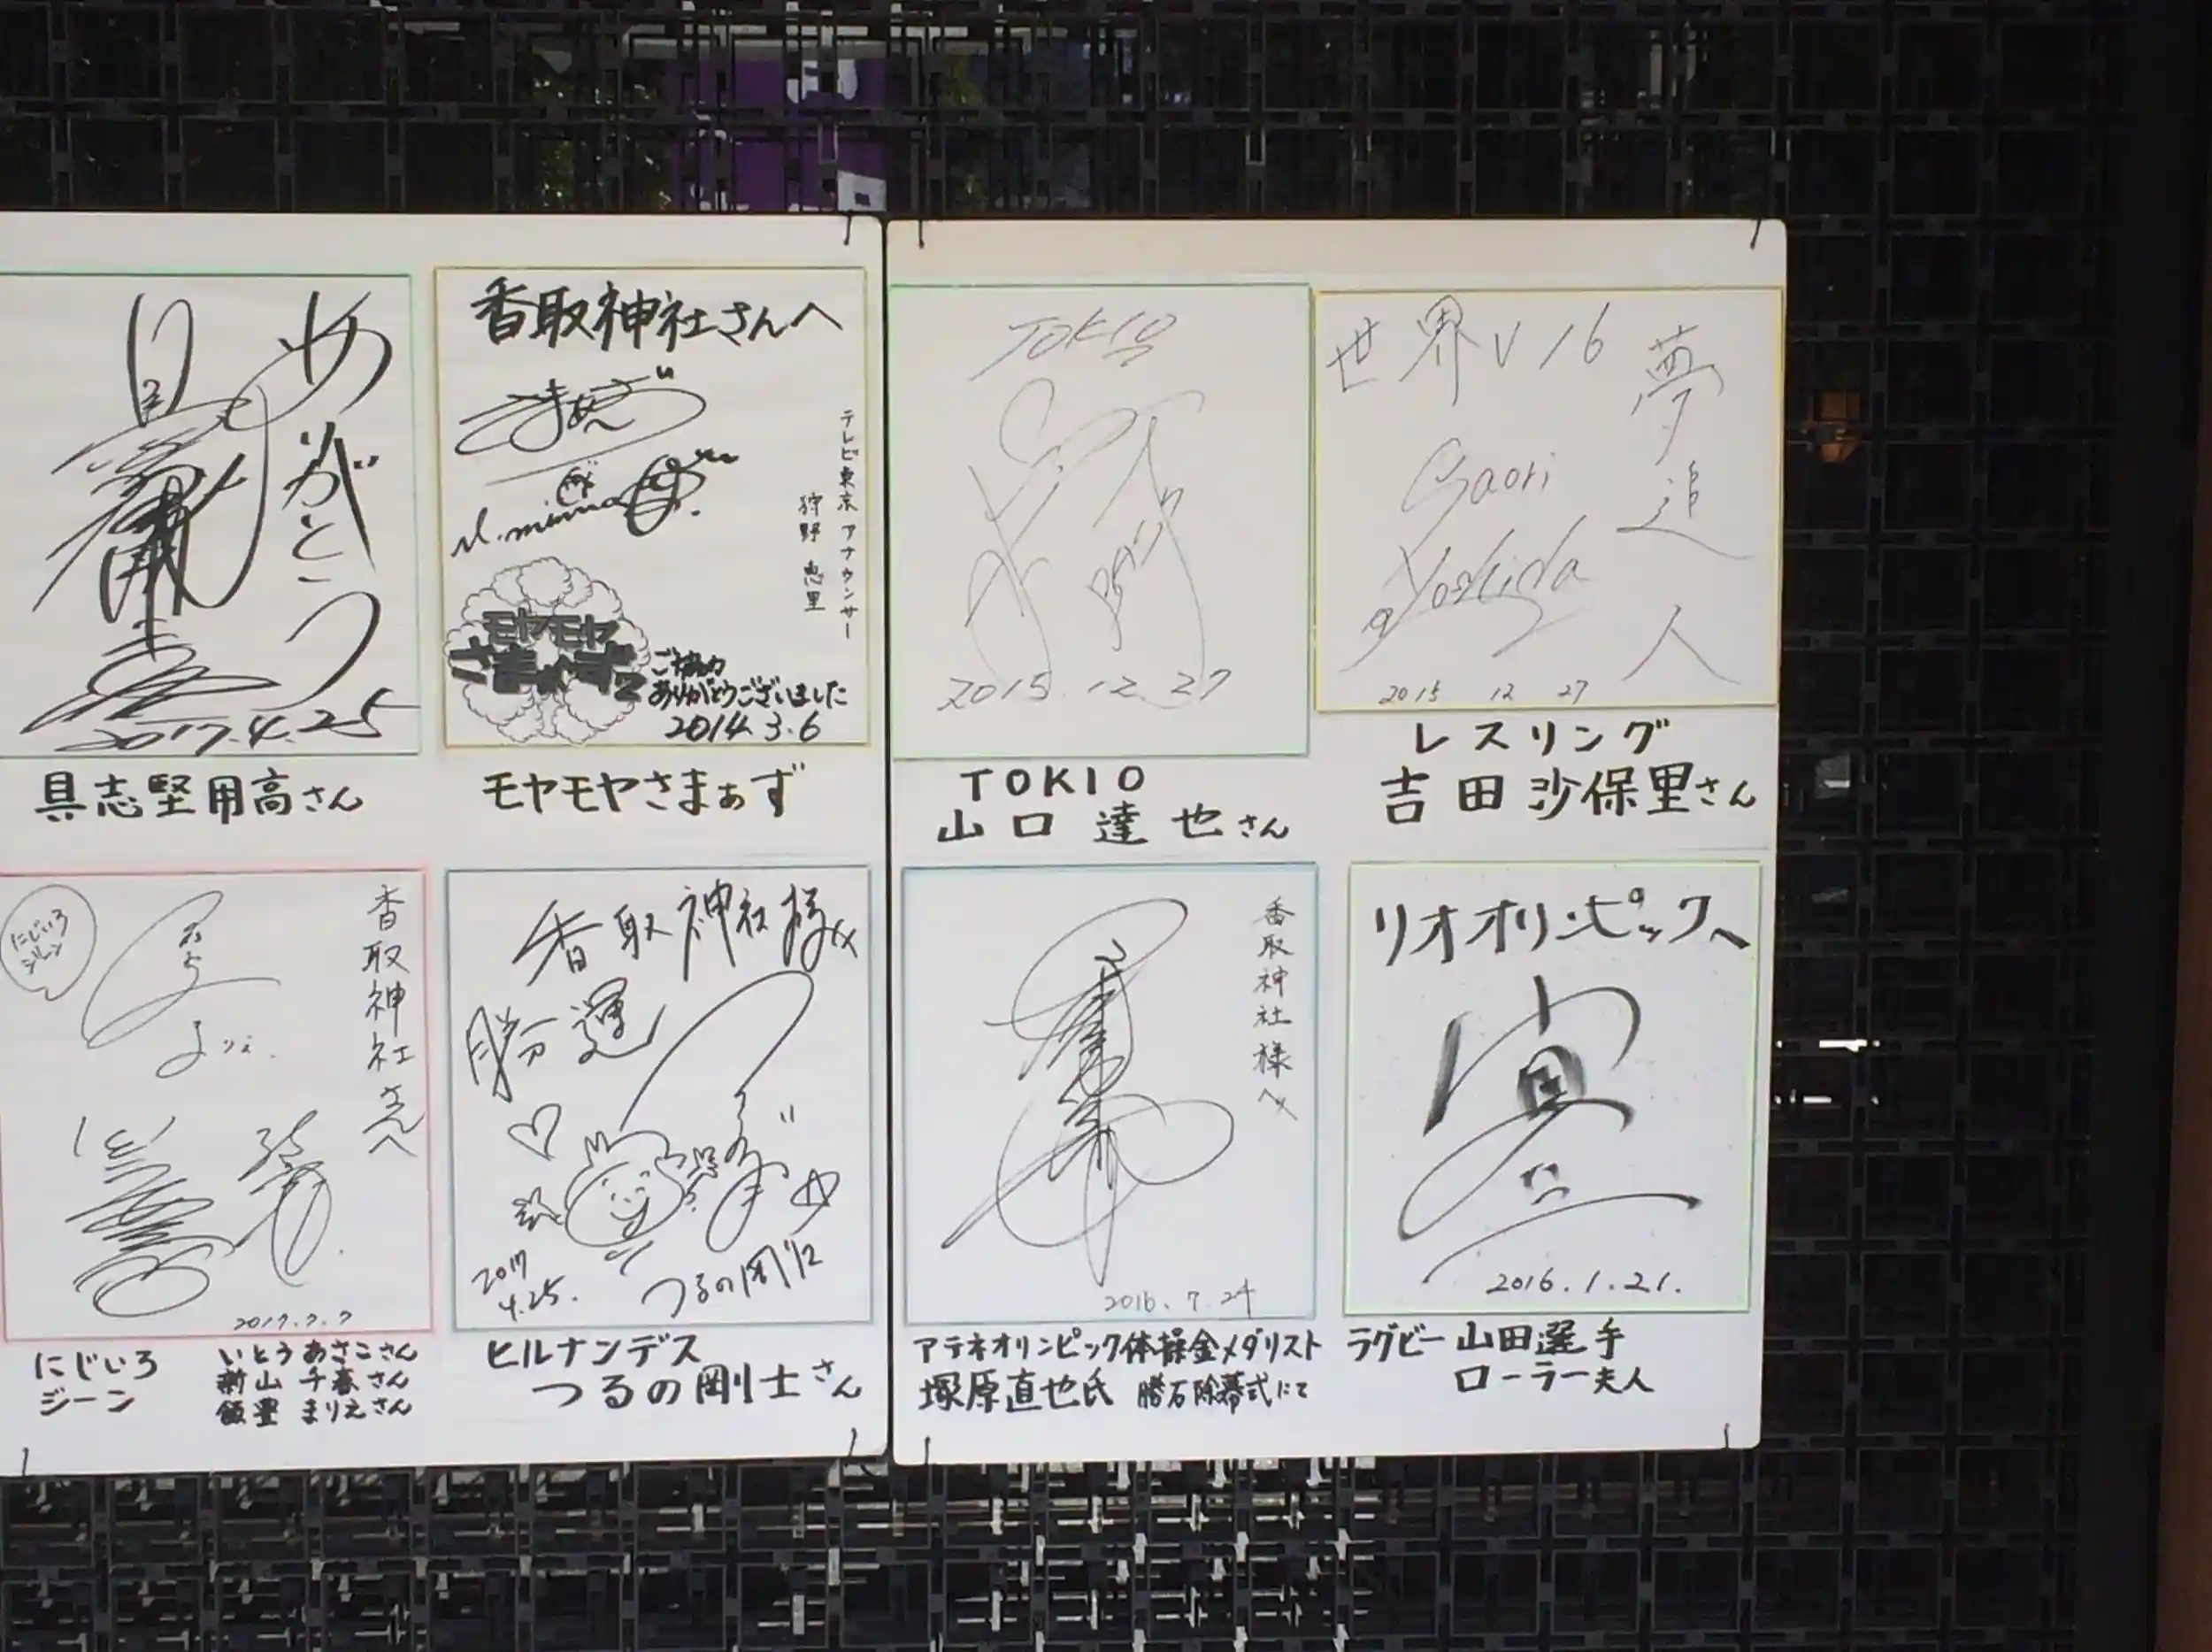 ありがとう
2017.4.25
具志堅用高さん
香取神社さんへ
テレビ東京 アナウンサー
狩野 恵里
モヤモヤ
さまぁ〜ず2
ご協力
ありがとうございました
2014.3.6
モヤモヤさまぁず
TOKIO
2015.12.27
TOKIO
山口達也さん
世界V16
夢追人
Saori
Yoshida
2015 12 27
レスリング
吉田沙保里さん
香取神社さんへ
にじいろ
ジーン
2017.7.7
にじいろ
ジーン
いとう あさこさん
新山 千春さん
飯豊 まりえさん
香取神社様へ
勝分運
2017
4.25.
つるの剛士
ヒルナンデス
つるの剛士さん
香取神社様へ
2016.7.24
アテネオリンピック体操金メダリスト
塚原直也氏 勝石除幕式にて
リオオリンピックへ
2016.1.21.
ラグビー 山田選手
ローラー夫人